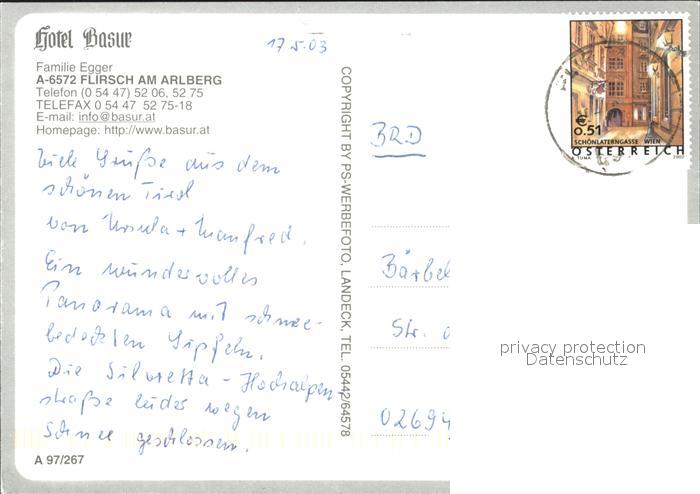 Hotel Basur
Familie Egger
A-6572 FLIRSCH AM ARLBERG
Telefon (0 54 47) 52 06, 52 75
TELEFAX 0 54 47 52 75-18
E-mail: info@basur.at
Homepage: http://www.basur.at
17.5.03
Viele Grüße aus dem
schönen Tirol
von Ursula + Manfred.
Ein wundervolles
Panorama mit schnee-
bedeckten Gipfeln.
Die Silvretta - Hochalpen-
straße leider wegen
Schnee geschlossen.
A 97/267
COPYRIGHT BY PS-WERBEFOTO, LANDECK, TEL. 05442/64578
BRD
Bärbel
Str. d
02694
€
0.51
SCHÖNLATERNGASSE WIEN
ÖSTERREICH
TUMA 2002
privacy protection
Datenschutz